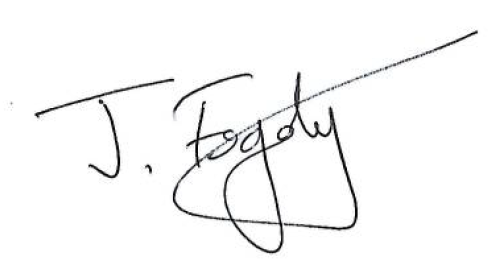 J. Fogdy